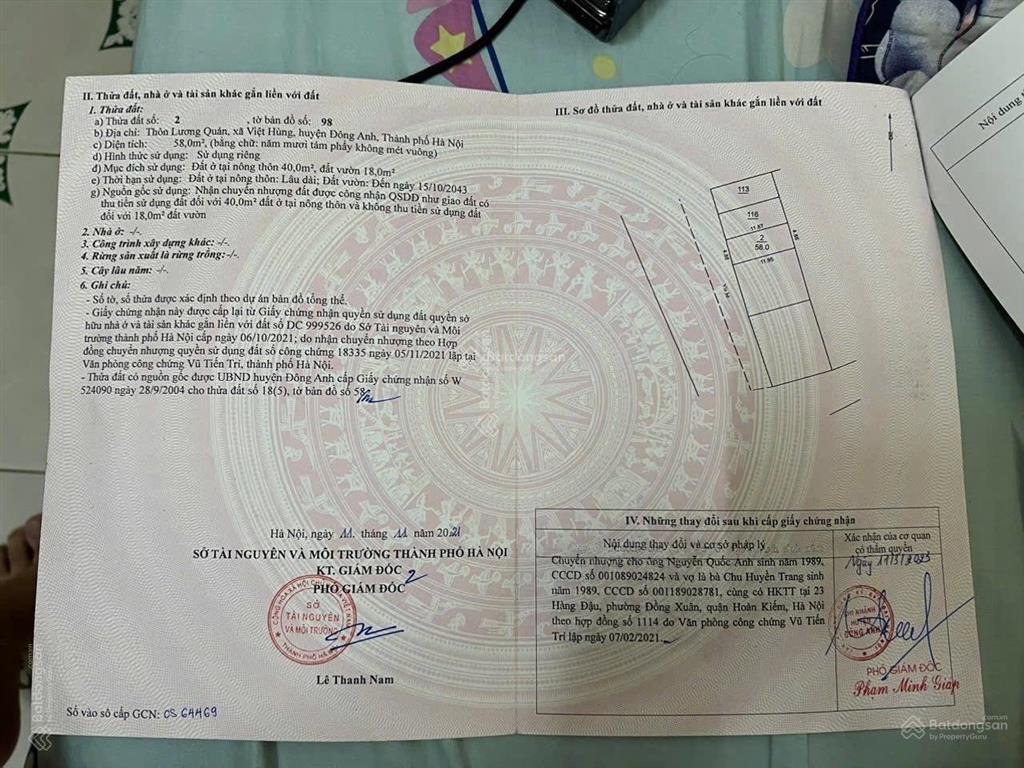 II. Thửa đất, nhà ở và tài sản khác gắn liền với đất
1. Thửa đất:
a) Thửa đất số: 2 , tờ bản đồ số: 98
b) Địa chỉ: Thôn Lương Quán, xã Việt Hùng, huyện Đông Anh, Thành phố Hà Nội
c) Diện tích: 58,0m², (bằng chữ: năm mươi tám phẩy không mét vuông)
d) Hình thức sử dụng: Sử dụng riêng
đ) Mục đích sử dụng: Đất ở tại nông thôn 40,0m², đất vườn 18,0m²
e) Thời hạn sử dụng: Đất ở tại nông thôn: Lâu dài; Đất vườn: Đến ngày 15/10/2043
g) Nguồn gốc sử dụng: Nhận chuyển nhượng đất được công nhận QSDĐ như giao đất có
thu tiền sử dụng đất đối với 40,0m² đất ở tại nông thôn và không thu tiền sử dụng đất
đối với 18,0m² đất vườn
2. Nhà ở: -/-.
3. Công trình xây dựng khác: -/-.
4. Rừng sản xuất là rừng trồng: -/-.
5. Cây lâu năm: -/-.
6. Ghi chú:
- Số tờ, số thửa được xác định theo dự án bản đồ tổng thể.
- Giấy chứng nhận này được cấp lại từ Giấy chứng nhận quyền sử dụng đất quyền sở
hữu nhà ở và tài sản khác gắn liền với đất số DC 999526 do Sở Tài nguyên và Môi
trường thành phố Hà Nội cấp ngày 06/10/2021; do nhận chuyển nhượng theo Hợp
đồng chuyển nhượng quyền sử dụng đất số công chứng 18335 ngày 05/11/2021 lập tại
Văn phòng công chứng Vũ Tiến Trí, thành phố Hà Nội.
- Thửa đất có nguồn gốc được UBND huyện Đông Anh cấp Giấy chứng nhận số W
524090 ngày 28/9/2004 cho thửa đất số 18(5), tờ bản đồ số 58.
Hà Nội, ngày 11 tháng 11 năm 2021
SỞ TÀI NGUYÊN VÀ MÔI TRƯỜNG THÀNH PHỐ HÀ NỘI
KT. GIÁM ĐỐC
PHÓ GIÁM ĐỐC
SỞ
TÀI NGUYÊN
VÀ MÔI TRƯỜNG
Lê Thanh Nam
Số vào sổ cấp GCN: CS 64469
III. Sơ đồ thửa đất, nhà ở và tài sản khác gắn liền với đất
B
113
116
11.87
2
58.0
4.88
4.88
11.95
IV. Những thay đổi sau khi cấp giấy chứng nhận
Nội dung thay đổi và cơ sở pháp lý
Xác nhận của cơ quan
có thẩm quyền
Chuyển nhượng cho ông Nguyễn Quốc Anh sinh năm 1989,
CCCD số 001089024824 và vợ là bà Chu Huyền Trang sinh
năm 1989, CCCD số 001189028781, cùng có HKTT tại 23
Hàng Đậu, phường Đồng Xuân, quận Hoàn Kiếm, Hà Nội
theo hợp đồng số 1114 do Văn phòng công chứng Vũ Tiến
Trí lập ngày 07/02/2021.
CHI NHÁNH
HUYỆN
ĐÔNG ANH
PHÓ GIÁM ĐỐC
Phạm Minh Giáp
Nội dung
Batdongsan
Batdongsan
.com.vn
by PropertyGuru